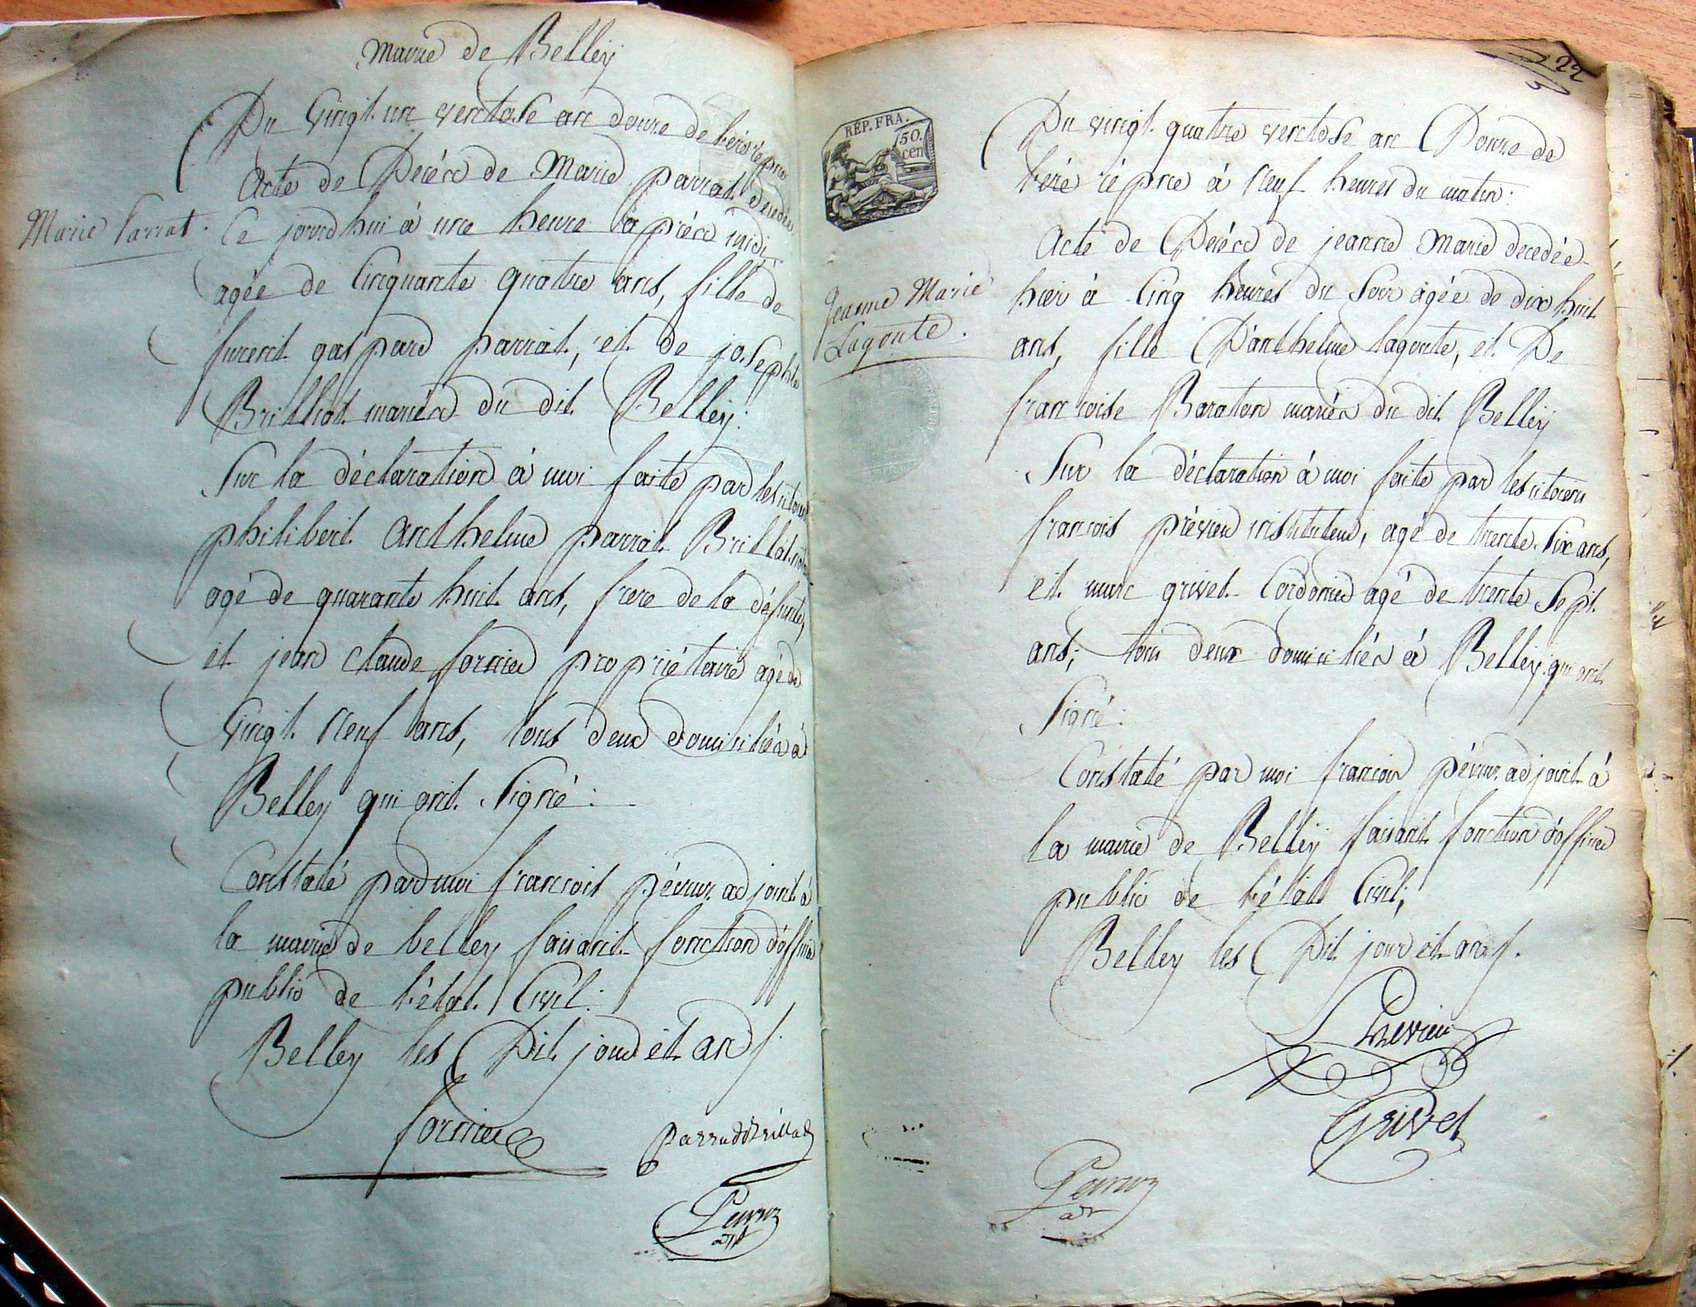 mairie de Belley
Du vingt un ventose an douze de l'ere repce
Acte de Décéd de Marie parrat décédée
Marie Parrat.
Ce jourdhui à une heure après midi,
agée de Cinquante quatre ans, fille de
furent gaspard parrat, et de josephte
Brillat mariés du dit Belley:
Sur la déclaration à moi faite par les citoiens
philibert anthelme parrat Brillat
agé de quarante huit ans, frere de la défunte,
et jean claude fornier propriétaire agé de
Vingt Neuf ans, tous deux domiciliés à
Belley qui ont Signé:
Constaté par moi francois adjoint à
la mairie de belley faisant fonction d'officier
public de l'état Civil:
Belley les Dit jour et an
fornier
parrat Brillat
22
REP. FRA.
50.
cen
Du vingt quatre ventose an Douze de
l'ere repce à Neuf heures du matin:
Acte de Décéd de jeanne marie decedée
Jeanne Marie
Lagoute.
hier à Cinq heures du Soir agée de dix huit
ans, fille D'anthelme lagoute, et De
francoise Baraton mariés du dit Belley
Sur la déclaration à moi faite par les citoiens
francois prévieu instituteur, agé de trente Six ans,
et marc grivet Cordonier agé de trente Sept
ans; tous deux domiciliés à Belley qui ont
Signé:
Constaté par moi francois adjoint à
la mairie de Belley faisant fonction d'officier
public de l'état Civil;
Belley les Dit jour et an
Prévieu
Grivet